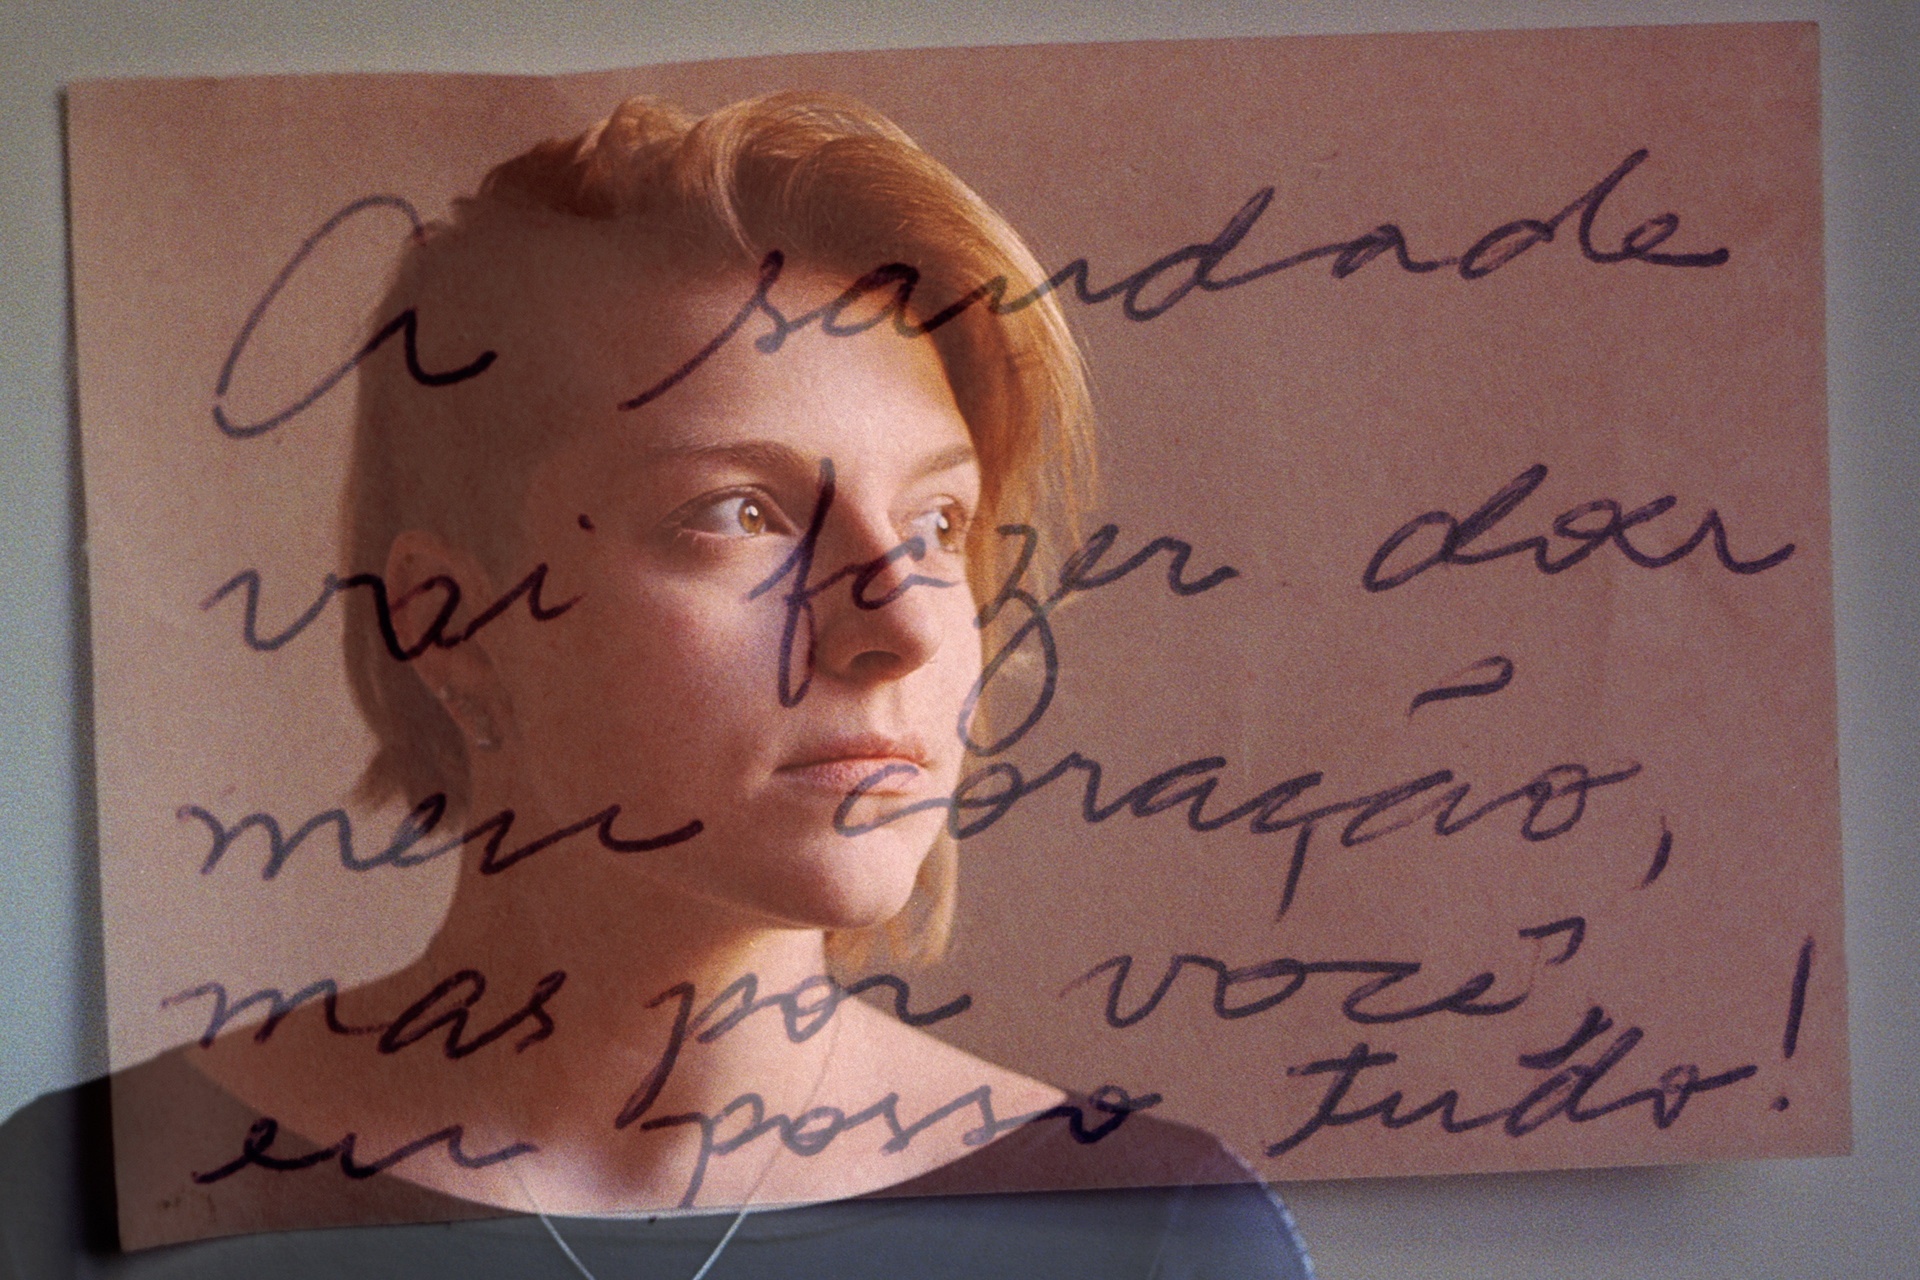 A saudade
vai fazer doer
meu coração,
mas por você,
eu posso tudo!